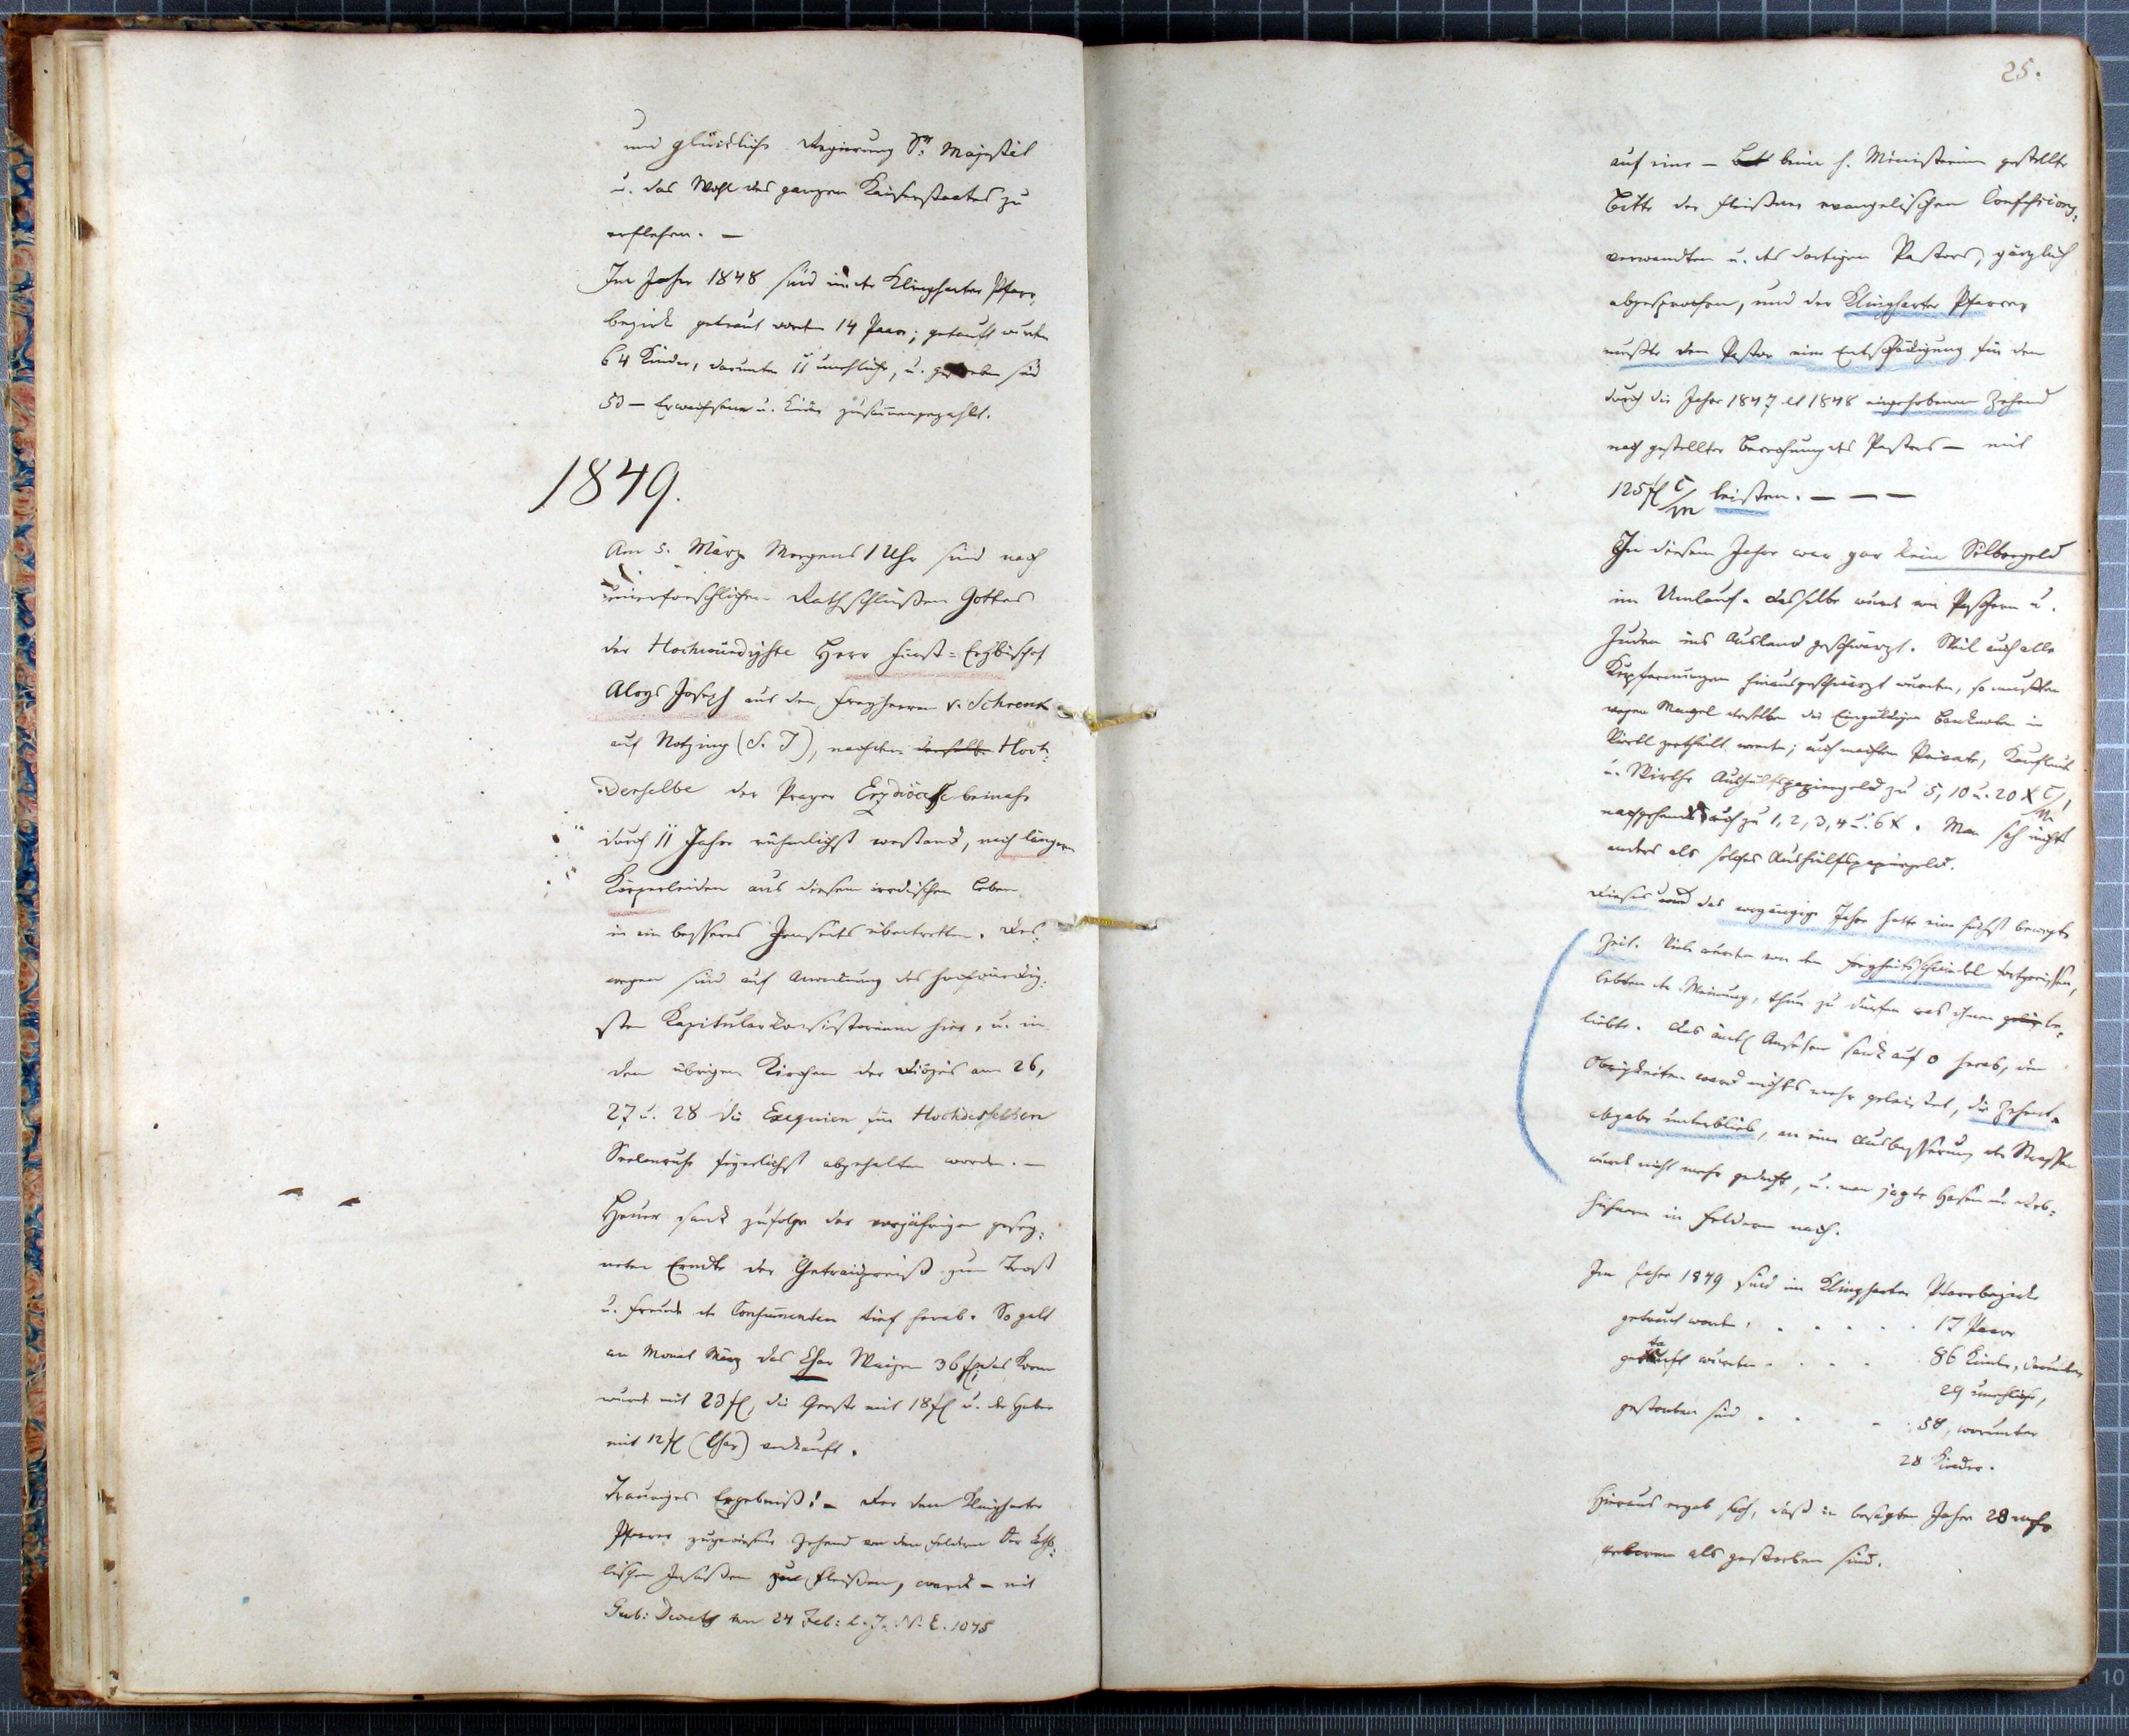 und glückliche Regierung Sr. Majestät
u. das Wohl des ganzen Kaiserstaates zu
erflehen. —
Im Jahre 1848 sind in der Klingharter Pfarr¬
bezirke getraut worden 14 Paare; getauft wurden
64 Kinder, darunter 11 unehliche, u. gestorben sind
53 — Erwachsene u. Kinder zusammengezahlt.
1849.
Am 5. März Morgens 1 Uhr sind nach
unerforschlichen Rathschlüßen Gottes
der Hochwürdigste Herr Fürst=Erzbischof
Aloys Joseph aus den Freyherrn v. Schrenk
auf Notzing (S. T), nachdem derselbe Hoch:
Derselbe der Prager Erzdiöcese beinahe
durch 11 Jahre rühmlichst vorstand, nach längern
Körperleiden aus diesem irrdischen Leben
in ein besseres Jenseits übertretten. Des:
wegen sind auf Anordnung des hochwürdig:
sten Kapitularkonsistorium hier, u. in
den übrigen Kirchen der Diözes am 26,
27 u. 28 die Exequien für Hochdesselben
Seelenruhe feyerlichst abgehalten worden. —
Heuer sank zufolge der vorjährigen geseg:
neten Erndte der Getraidpreiß zum Trost
u. Freude der Consumenten tief herab. So galt
im Monat März das Ehar Waizen 36 fl, das Korn
wurde mit 23 fl, die Gerste mit 18 fl u. der Haber
mit 12 fl (Ehar) verkauft.
Trauriges Ergebniß! — Der dem Klingharter
Pfarrer zugewiesene Zehend von den Feldern der katho:
lischen Insaßen zu Fleißen, ward — mit
Gub: Decrets vom 24 Feb: l. J. N. E. 1075
25.
auf eine — beim h. Ministerium gestellte
Bitte der Fleißner evangelischen Confessions:
verwandten u. des dortigen Pastors, gänzlich
abgesprochen, und der Klingharter Pfarrer
mußte dem Pastor eine Entschädigung für den
durch die Jahre 1847 et 1848 eingehobenen Zehend
nach gestellter Berechnung des Pastors — mit
125 fl C/m leisten. — — —
In diesem Jahre war gar kein Silbergeld
im Umlauf. Dasselbe wurde von Paschern u.
Juden ins Ausland geschwärzt. Weil auch alle
Kupfermünzen hinausgeschwärzt wurden, so mußten
wegen Mangel derselben die Einguldigen Banknoten in
Viertl getheilt werden; auch machten Private, Kaufleute
u. Wirthe Aushülfspapiergeld zu 5, 10 u. 20 x C/m,
nachgehends auch zu 1, 2, 3, 4 u. 6 x. Man sah nichts
anders als solches Aushülfspapiergeld.
Dieses und das vorgängige Jahr hatte eine höchst bewegte
Zeit. Viele wurden von dem Freyheitsschwindel fortgerissen,
lebten der Meinung, thun zu dürfen was ihnen be:
liebte. Das ämtl Ansehen sank auf 0 herab, den
Obrigkeiten ward nichts mehr geleistet, die Zehent¬
abgabe unterblieb, an eine Ausbesserung der Strassen
wurde nicht mehr gedacht, u. man jagte Hasen u. Reb:
hühnern in Feldern nach.
Im Jahre 1849 sind im Klingharter Pfarrbezirke
getraut worden . . . . . . 17 Paare
getauft wurden . . . . 86 Kinder, darunter
29 unehliche,
gestorben sind . . . . 58, worunter
28 Kinder.
Hieraus ergab sich, daß in besagten Jahre 28 mehr
geboren als gestorben sind.